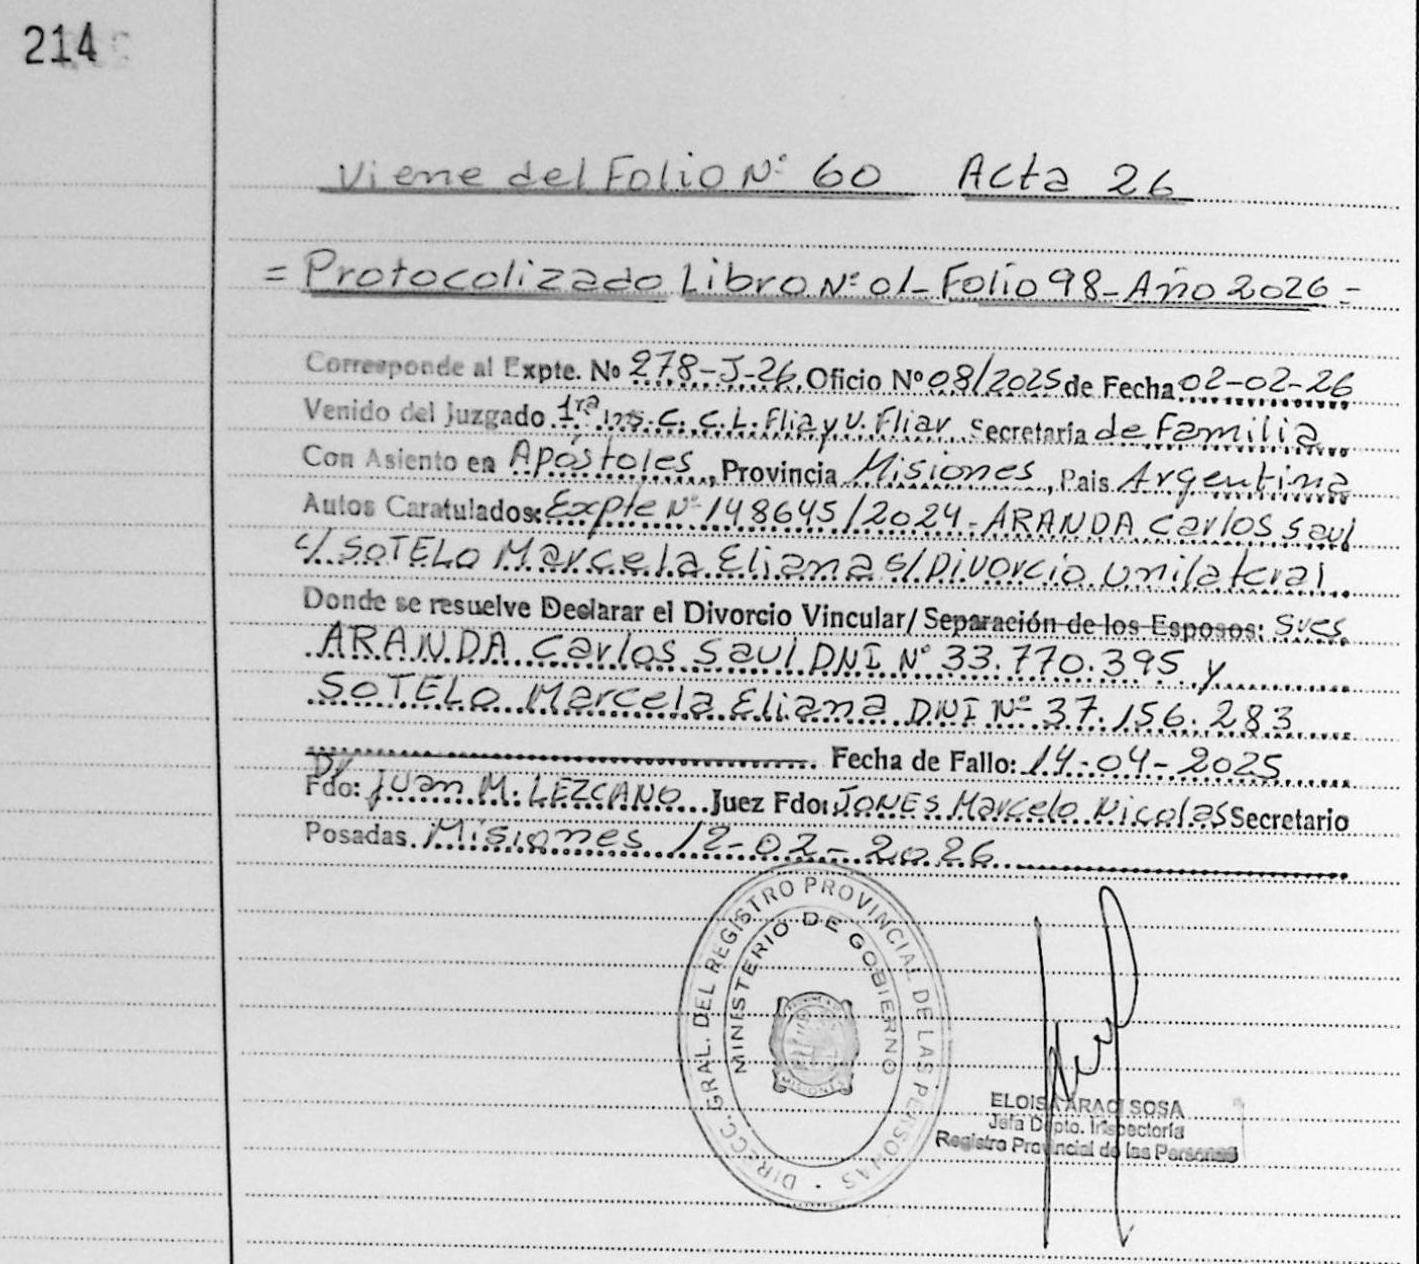 214
Viene del Folio Nº 60 Acta 26
= Protocolizado Libro Nº 01-Folio 98-Año 2026-
Corresponde al Expte. Nº 278-J-26. Oficio Nº 08/2025 de Fecha 02-02-26
Venido del Juzgado 1ra Ins. C. C. L. Flia y V. Fliar Secretaría de Familia
Con Asiento en Apóstoles, Provincia Misiones, Pais Argentina
Autos Caratulados: Expte Nº 148645/2024- ARANDA Carlos Saul
c/ SOTELO Marcela Eliana s/Divorcio Unilateral
Donde se resuelve Declarar el Divorcio Vincular/ Separación de los Esposos: Sres
ARANDA Carlos Saul DNI Nº 33.770.395 y
SOTELO Marcela Eliana DNI Nº 37.156.283
Fecha de Fallo: 14-04-2025
Fdo: Dr Juan M. LEZCANO Juez Fdo: JONES Marcelo Nicolas Secretario
Posadas. Misiones 12-02-2026
DIRECC. GRAL. DEL REGISTRO PROVINCIAL DE LAS PERSONAS
MINISTERIO DE GOBIERNO
MISIONES
ELOISA ARACI SOSA
Jefa Dpto. Inspectoría
Registro Provincial de las Personas